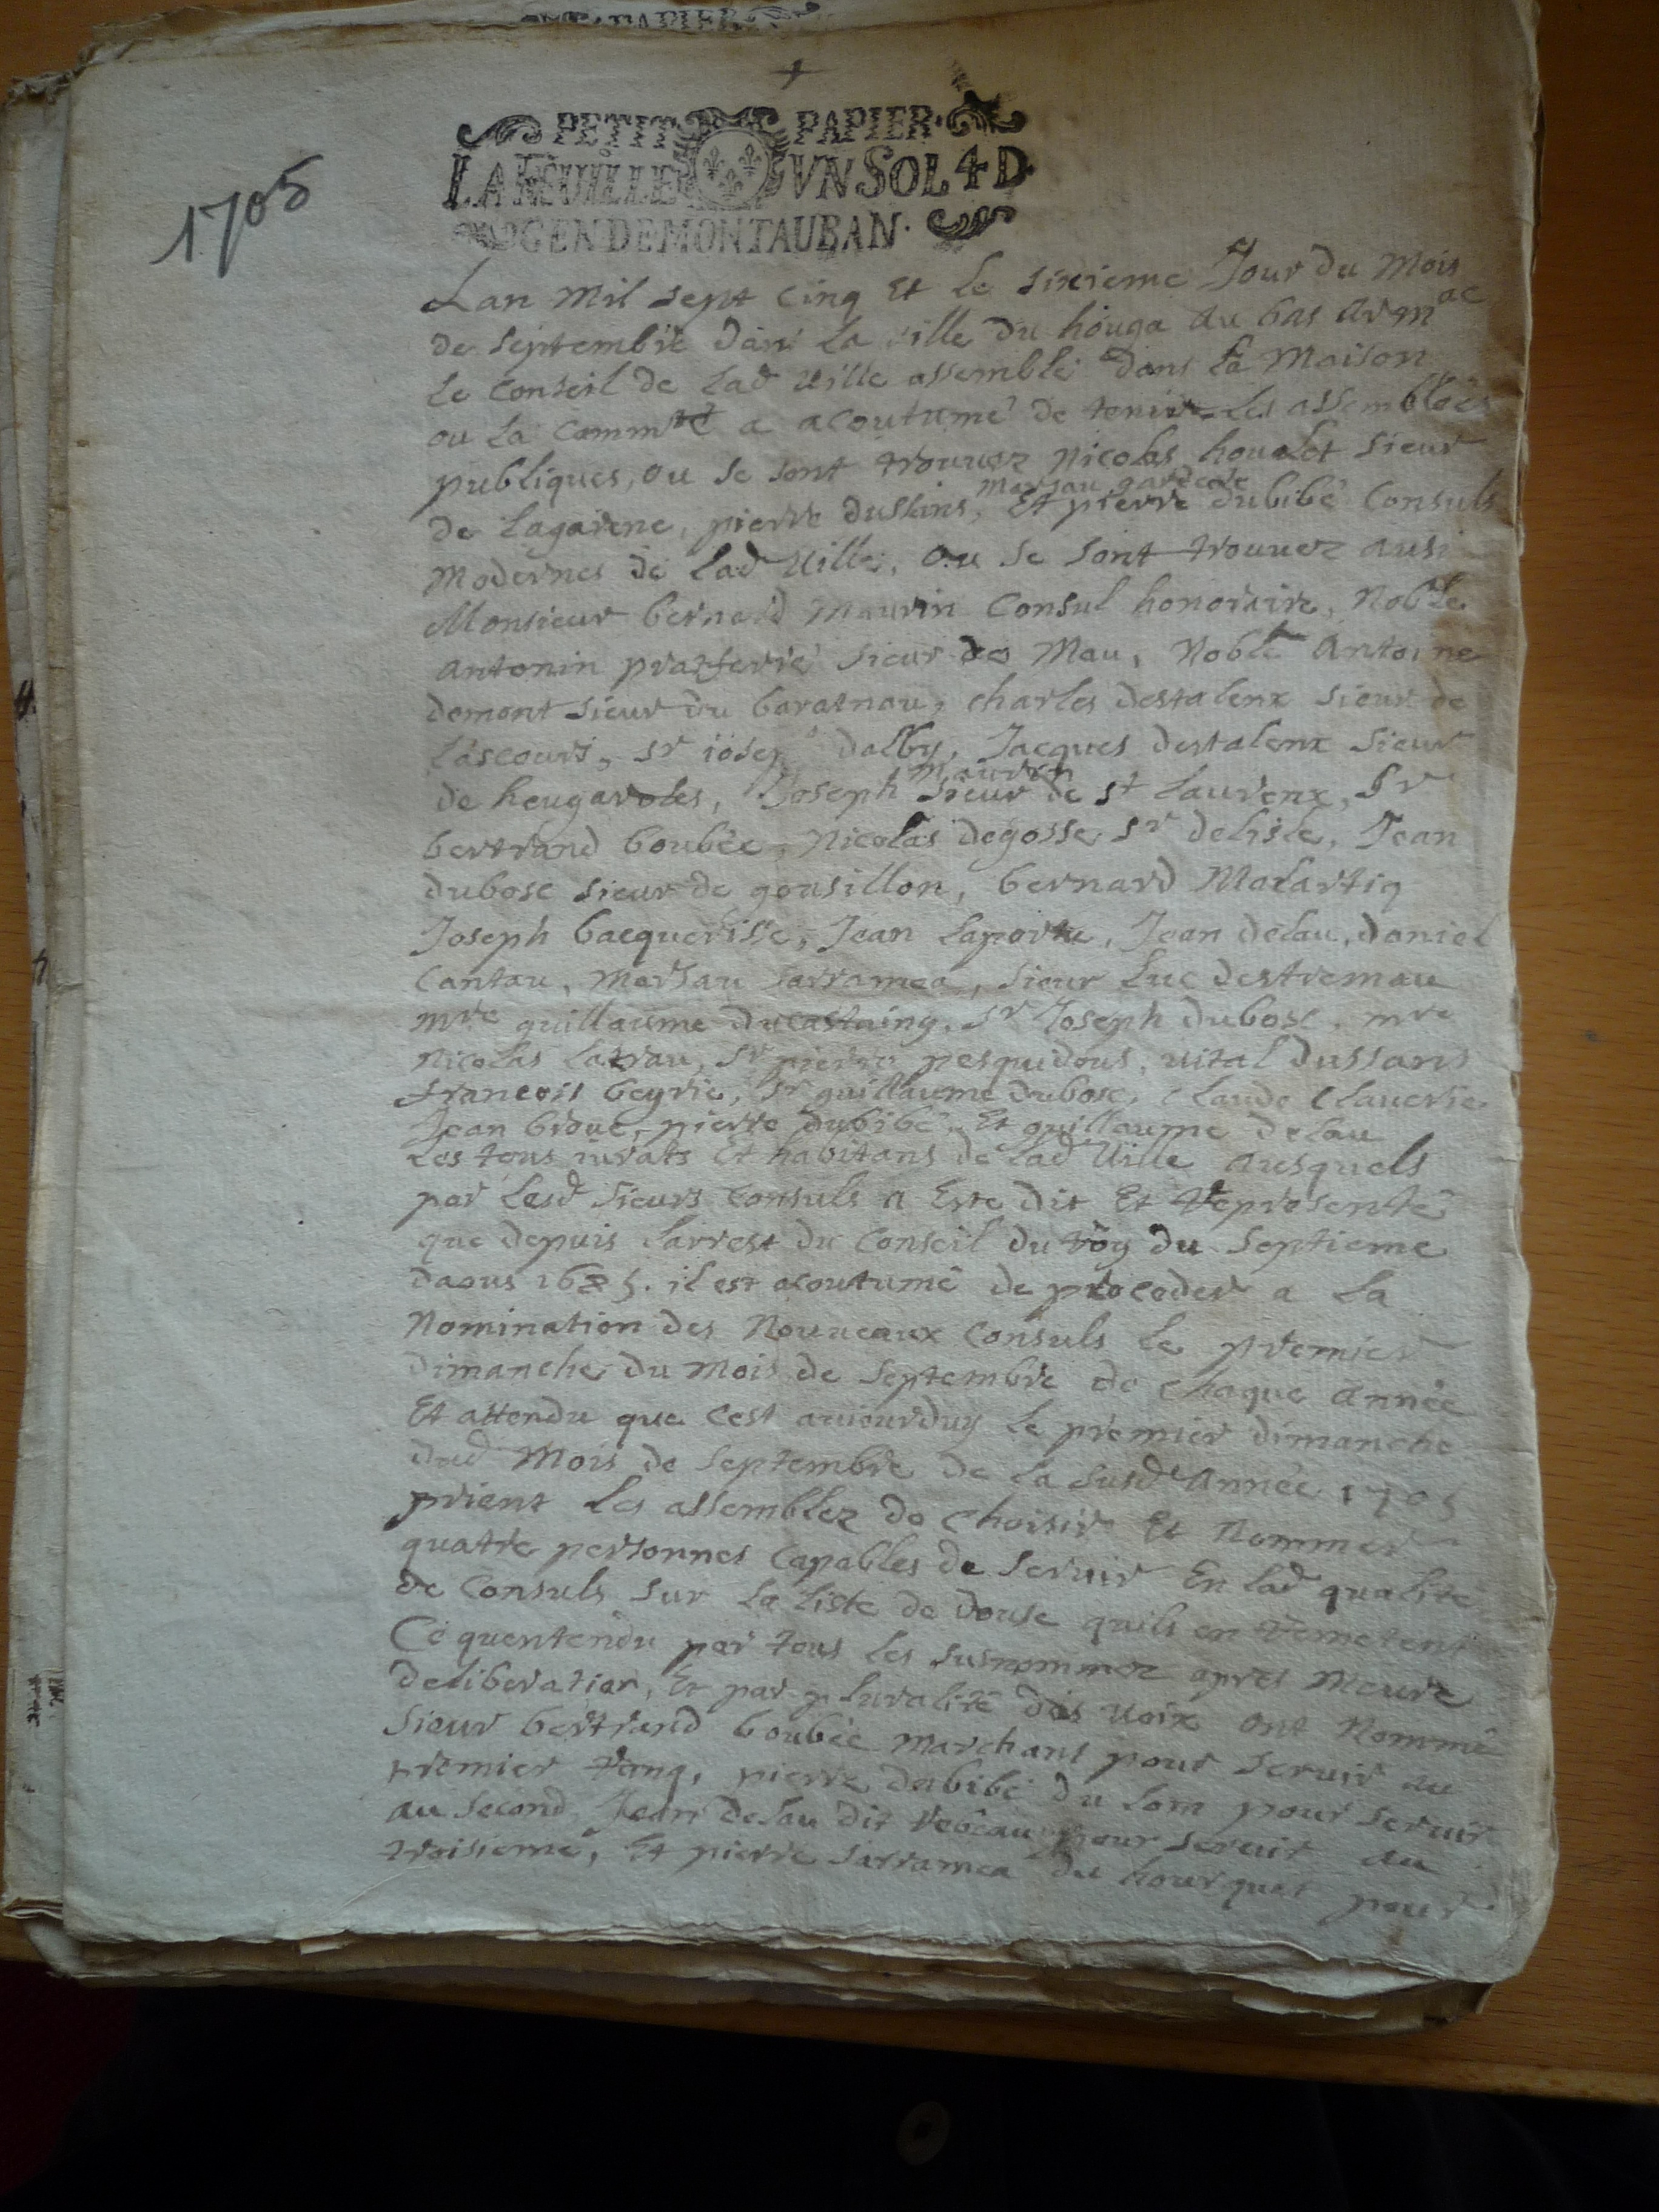 PETIT PAPIER
LA FEUILLE VN SOL 4 D.
GEN DE MONTAUBAN.
1705
Lan mil sept cinq et le sixieme Jour du mois
de septembre dans la ville du houga au bas armac
le conseil de lad ville assemblé dans la maison
ou la commté a acoutumé de tenir les assemblées
publiques, ou se sont trouuez nicolas houalet sieur
de lagarene, pierre duslans, marsau gardere et pierre dubibé consuls
modernes de lad ville, ou se sont trouuez ausi
Monsieur bernard maurin consul honoraire, noble
antonin pratferré sieur de mau, noble antoine
demont sieur du baratnau, charles destalenx sieur de
lascours, sr iosep dalby, Jacques destalenx sieur
de heugaroles, Joseph maurin sieur de st laurenx, sr
bertrand boubée, nicolas degosse sr delisle, Jean
dubosc sieur de gousillon, bernard malartiq
Joseph bacquerisse, Jean laporte, Jean delau, daniel
cantau, marsau sarramea, sieur luc destremau
mre guillaume ducastaing, sr Joseph dubosc, mre
nicolas latrau, sr pierre pesquidous, vital dussans
francois beyrie, sr guillaume dubosc, claude clauerie
Jean brouc, pierre dubibé et guillaume delau
les tous iurats et habitans de lad ville ausquels
par lesd sieurs consuls a este dit et representé
que depuis larrest du conseil du roy du septieme
daous 1685. il est acoutumé de proceder a la
nomination des nouueaux consuls le premier
dimanche du mois de septembre de chaque année
et attendu que cest auiourduy le premier dimanche
dud mois de septembre de la susd année 1705
prient les assemblez de choisir et nommer
quatre personnes capables de seruir en lad qualité
de consuls sur la liste de douse quils en remetent
Ce quentendu par tous les susnommez apres meure
deliberation, et par pluralité des voix ont nommé
sieur bertrand boubée marchant pour seruir au
premier rang, pierre dubibé du lom pour seruir
au second, Jean delau dit pour seruir au
troisieme, et pierre sarramea du hourquet pour